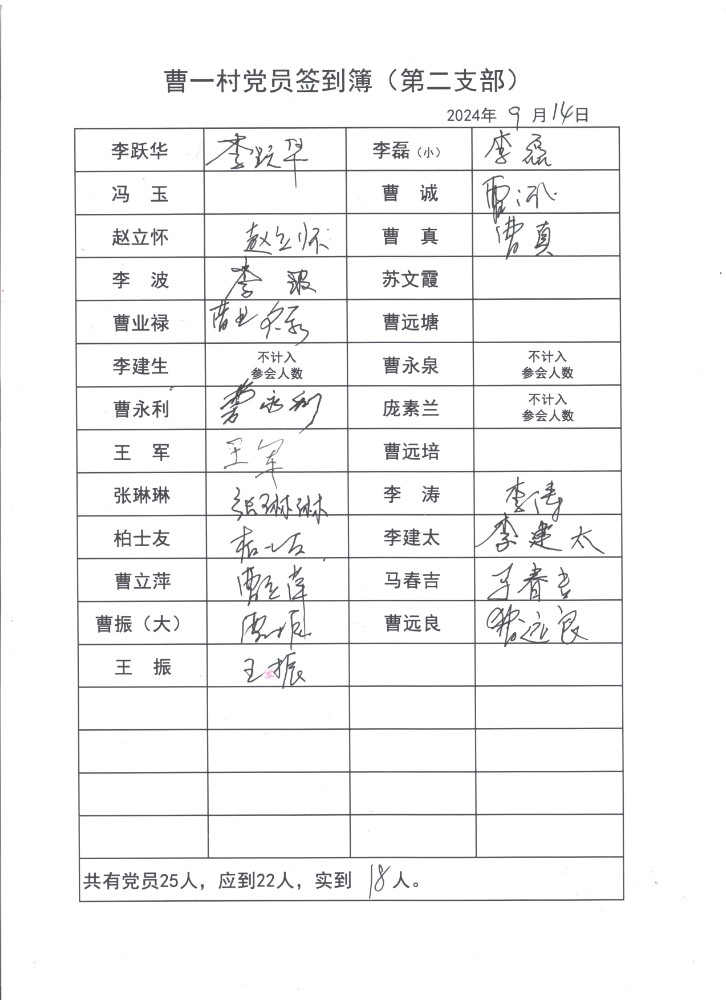 曹一村党员签到簿（第二支部）
2024年 9 月 14日
李跃华 李跃华 李磊（小） 李磊
冯 玉 曹 诚 曹诚
赵立怀 赵立怀 曹 真 曹真
李 波 李波 苏文霞
曹业禄 曹业禄 曹远塘
李建生 不计入 曹永泉 不计入
参会人数 参会人数
曹永利 曹永利 庞素兰 不计入
参会人数
王 军 王军 曹远培
张琳琳 张琳琳 李 涛 李涛
柏士友 柏士友 李建太 李建太
曹立萍 曹立萍 马春吉 马春吉
曹振（大） 曹振 曹远良 曹远良
王 振 王振
共有党员25人，应到22人，实到 18 人。